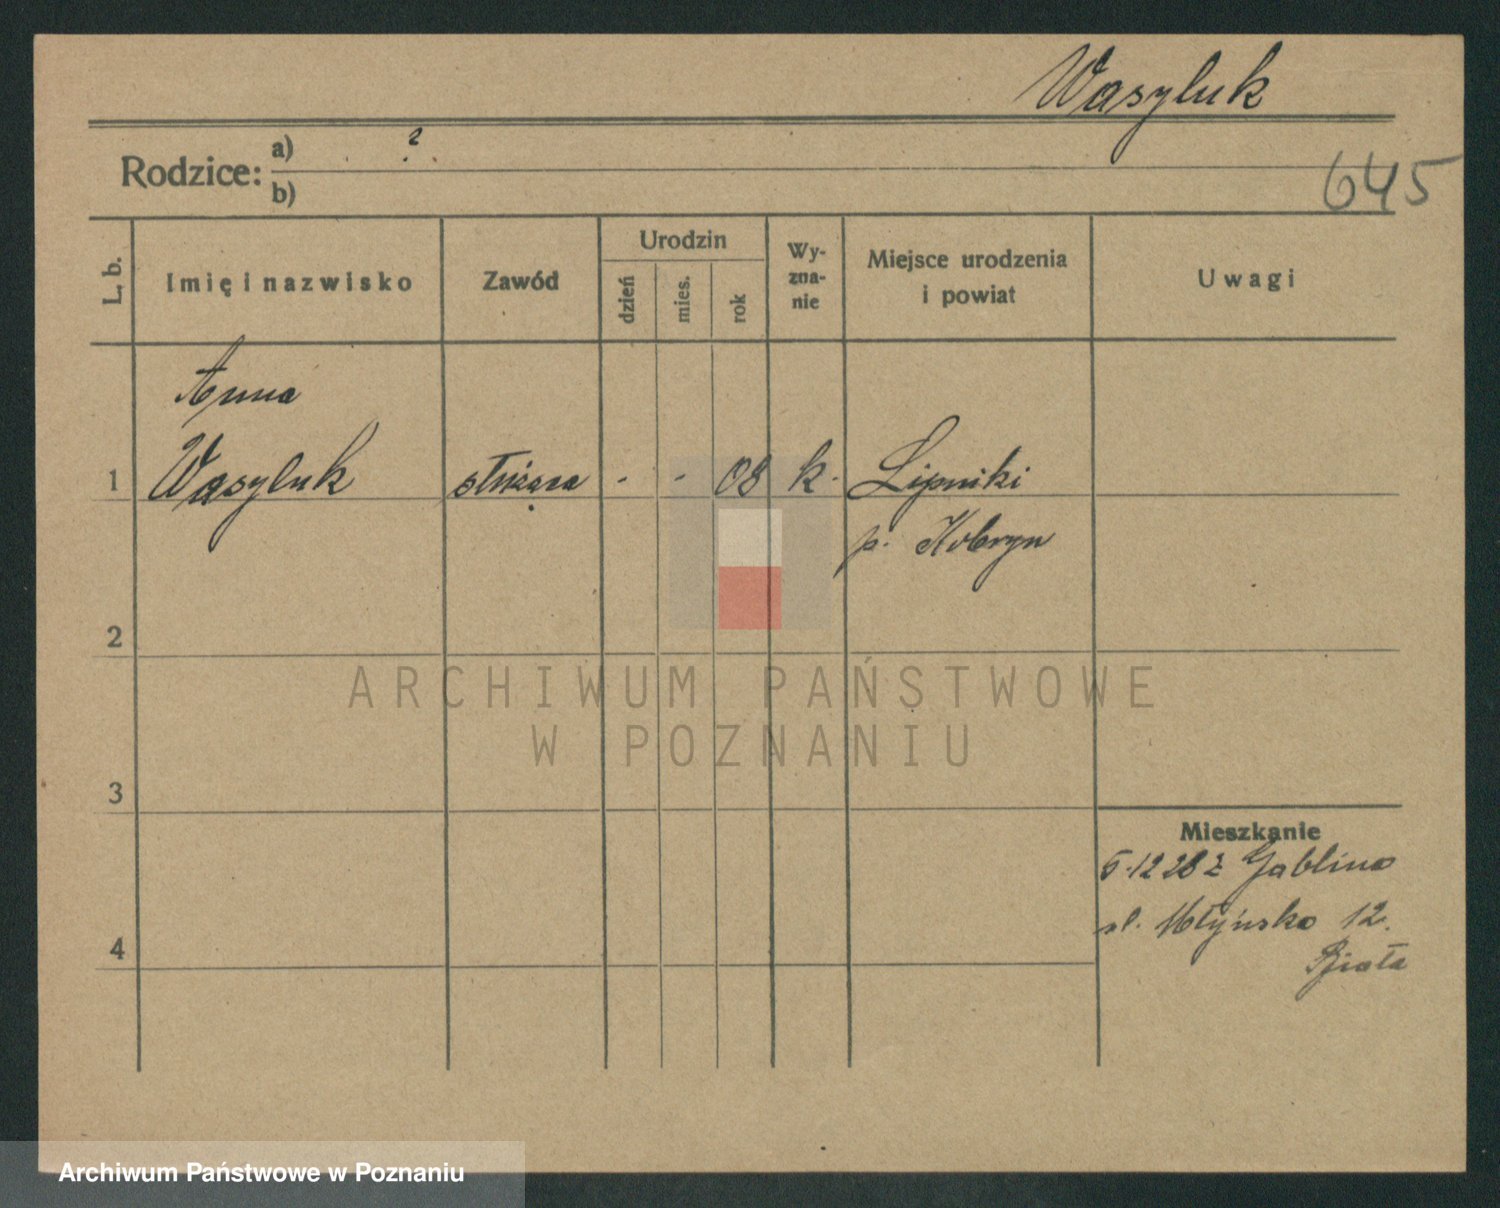 Wasyluk
Rodzice: a) ?
b)
645
L. b.
Imię i nazwisko
Zawód
Urodzin
dzień
mies.
rok
Wy-
zna-
nie
Miejsce urodzenia
i powiat
Uwagi
Anna
1 Wasyluk służąca - - 08 k. Lipniki
p. Kobryn
2
ARCHIWUM PAŃSTWOWE
W POZNANIU
3
Mieszkanie
5.12 28 z Jablina
ul. Młyńska 12.
4
Biała
Archiwum Państwowe w Poznaniu